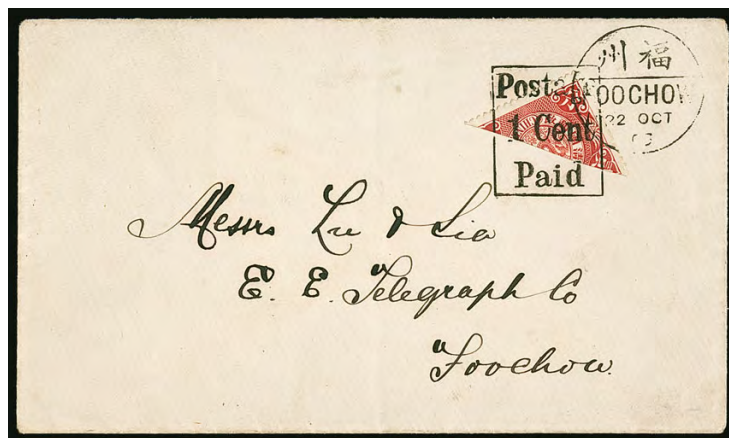 州福
FOOCHOW
22 OCT
Postage
1 Cent
Paid
Messrs Lu & Sia
E. E. Telegraph Co
Foochow.